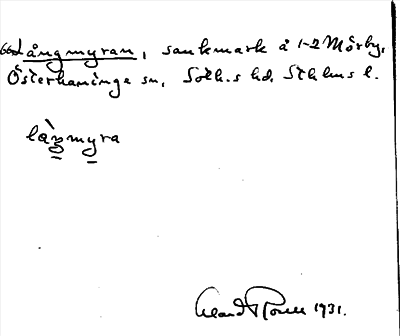 Långmyran, sankmark å 1-2 Mörby,
Österhaninge sn, Soth.s hd. Sthlms l.
làŋmyra
1931.